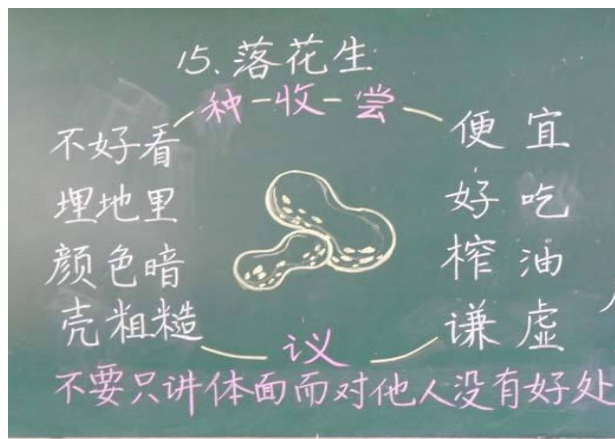 15.落花生
种-收-尝
不好看
埋地里
颜色暗
壳粗糙
便宜
好吃
榨油
谦虚
议
不要只讲体面而对他人没有好处